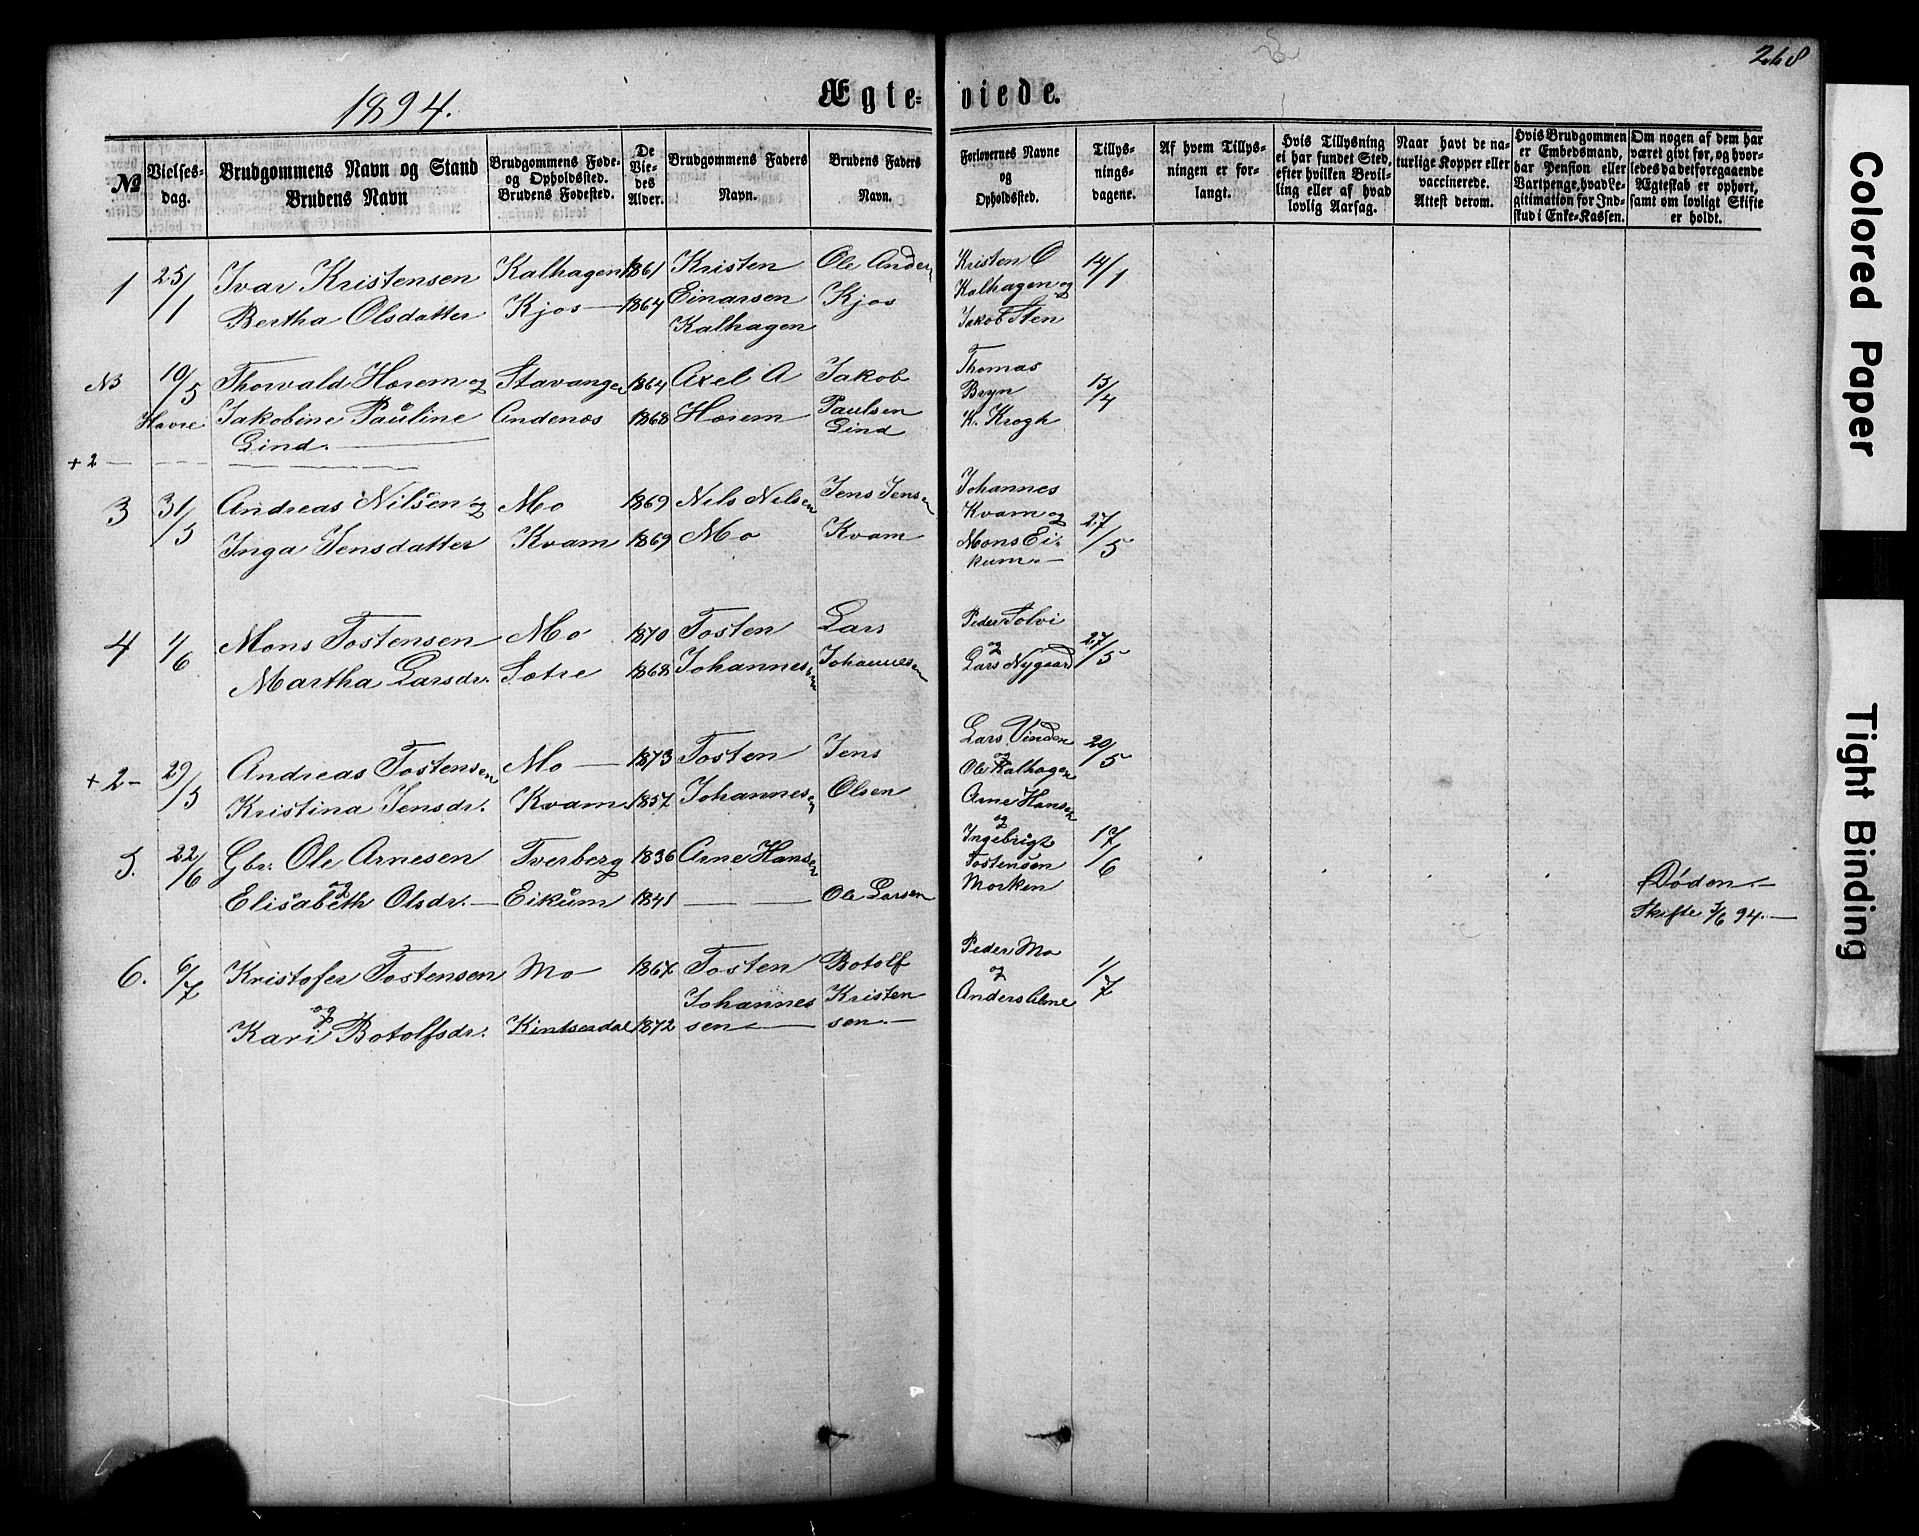 268
1894.
Ægte- viede.
No
Vielses-
dag.
Brudgommens Navn og Stand
Brudens Navn
Brudgommens Føde-
og Opholdssted.
Brudens Fødested.
De
Vie-
des
Alder.
Brudgommens Faders
Navn.
Brudens Faders
Navn.
Forlovernes Navne
og
Opholdssted.
Tillys-
nings-
dagene.
Af hvem Tillys-
ningen er for-
langt.
Hvis Tillysning
ei har fundet Sted,
efter hvilken Bevil-
ling eller af hvad
lovlig Aarsag.
Naar havt de na-
turlige Kopper eller
vaccinerede.
Attest derom.
Hvis Brudgommen
er Embedsmand,
har Pension eller
Vartpenge, hvad Le-
gitimation for Ind-
skud i Enke-Kassen.
Om nogen af dem har
været givt før, og hvor-
ledes da det foregaaende
Ægteskab er ophørt,
samt om lovligt Skifte
er holdt.
1 25/1 Ivar Kristensen Kalhagen 1861 Kristen Ole Ander- Kristen O 14/1
Bertha Olsdatter Kjos — 1864 Einarsen Kjos Kalhagen og
Kalhagen Jakob Sten
NB 10/5 Thorvald Horem og Stavanger 1864 Axel A Jakob Thomas
Havre Jakobine Pauline Andenæs 1868 Horem Paulsen Bryn 15/4
Gind. — Gind K. Krogh
+2 —
3 31/5 Andreas Nilsen og Mo 1869 Nils Nilsen Jens Jensen Johannes
Inga Jensdatter Kvam 1869 Mo Kvam Kvam og 27/5
Mons Ei-
kum. —
4 1/6 Mons Tostensen Mo 1870 Tosten Lars Peder Solvi
Martha Larsdr. Sætre 1868 Johannessen Johannesen og Lars Nygaard 27/5
+2- 29/5 Andreas Tostensen Mo — 1873 Tosten Jens Lars Vinden 20/5
Kristina Jensdr. Kvam 1857 Johannesen Olsen og Ole Kalhagen
5. 22/6 Gbr. Ole Arnesen Tverberg 1836 Arne Hansen Arne Hansen
og Elisabeth Olsdr. — Eikum 1841 — — Ole Larsen og Ingebrigt 17/6
Tostensen
Morken
Døden. —
Skifte 5/6 94. —
6. 6/7 Kristofer Tostensen Mo 1867 Tosten Botolf Peder Mo
og Johannes Kristen og 1/7
Kari Botolfsdr. Kintserdal 1872 sen — sen. — Anders Arne
Colored Paper
Tight Binding